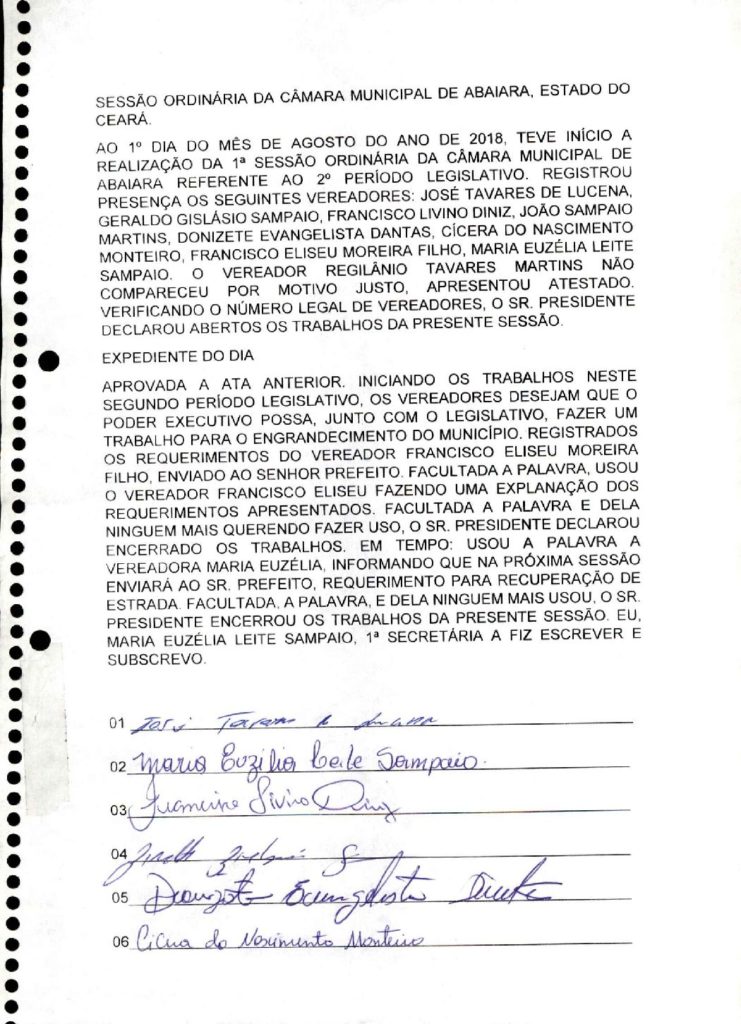 SESSÃO ORDINÁRIA DA CÂMARA MUNICIPAL DE ABAIARA, ESTADO DO
CEARÁ.
AO 1º DIA DO MÊS DE AGOSTO DO ANO DE 2018, TEVE INÍCIO A
REALIZAÇÃO DA 1ª SESSÃO ORDINÁRIA DA CÂMARA MUNICIPAL DE
ABAIARA REFERENTE AO 2º PERÍODO LEGISLATIVO. REGISTROU
PRESENÇA OS SEGUINTES VEREADORES: JOSÉ TAVARES DE LUCENA,
GERALDO GISLÁSIO SAMPAIO, FRANCISCO LIVINO DINIZ, JOÃO SAMPAIO
MARTINS, DONIZETE EVANGELISTA DANTAS, CÍCERA DO NASCIMENTO
MONTEIRO, FRANCISCO ELISEU MOREIRA FILHO, MARIA EUZÉLIA LEITE
SAMPAIO. O VEREADOR REGILÂNIO TAVARES MARTINS NÃO
COMPARECEU POR MOTIVO JUSTO, APRESENTOU ATESTADO.
VERIFICANDO O NÚMERO LEGAL DE VEREADORES, O SR. PRESIDENTE
DECLAROU ABERTOS OS TRABALHOS DA PRESENTE SESSÃO.
EXPEDIENTE DO DIA
APROVADA A ATA ANTERIOR. INICIANDO OS TRABALHOS NESTE
SEGUNDO PERÍODO LEGISLATIVO, OS VEREADORES DESEJAM QUE O
PODER EXECUTIVO POSSA, JUNTO COM O LEGISLATIVO, FAZER UM
TRABALHO PARA O ENGRANDECIMENTO DO MUNICÍPIO. REGISTRADOS
OS REQUERIMENTOS DO VEREADOR FRANCISCO ELISEU MOREIRA
FILHO, ENVIADO AO SENHOR PREFEITO. FACULTADA A PALAVRA, USOU
O VEREADOR FRANCISCO ELISEU FAZENDO UMA EXPLANAÇÃO DOS
REQUERIMENTOS APRESENTADOS. FACULTADA A PALAVRA E DELA
NINGUEM MAIS QUERENDO FAZER USO, O SR. PRESIDENTE DECLAROU
ENCERRADO OS TRABALHOS. EM TEMPO: USOU A PALAVRA A
VEREADORA MARIA EUZÉLIA, INFORMANDO QUE NA PRÓXIMA SESSÃO
ENVIARÁ AO SR. PREFEITO, REQUERIMENTO PARA RECUPERAÇÃO DE
ESTRADA. FACULTADA, A PALAVRA, E DELA NINGUEM MAIS USOU, O SR.
PRESIDENTE ENCERROU OS TRABALHOS DA PRESENTE SESSÃO. EU,
MARIA EUZÉLIA LEITE SAMPAIO, 1ª SECRETÁRIA A FIZ ESCREVER E
SUBSCREVO.
01 José Tavares de Lucena
02 Maria Euzélia Leite Sampaio
03 Francisco Livino Diniz
04
05 Donizete Evangelista Dantas
06 Cicera do Nascimento Monteiro